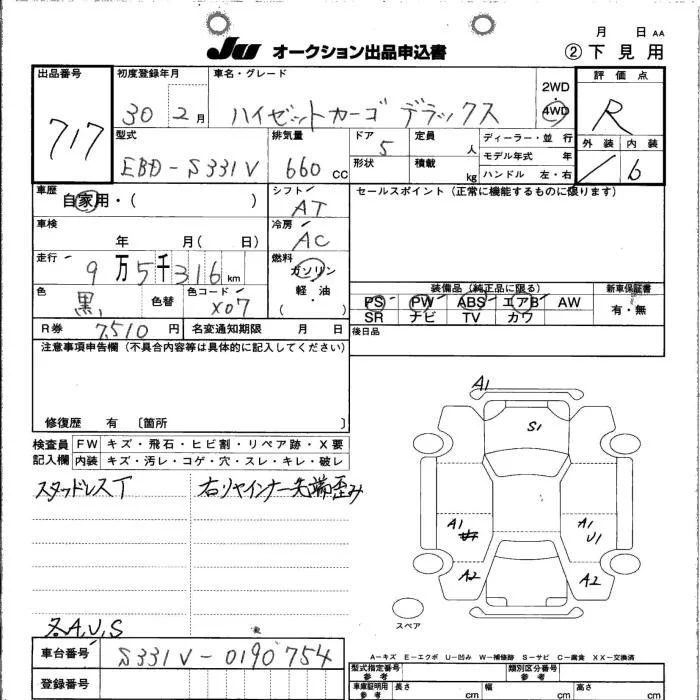 月 日 AA
JU オークション出品申込書 ②下見用
出品番号 717
初度登録年月 30 2月
車名・グレード ハイゼットカーゴ デラックス
2WD 4WD
評価点 R
外装 内装 6
型式 EBD-S331V
排気量 660 CC
ドア 5
形状
定員 人
積載 kg
ディーラー・並行
モデル年式 年
ハンドル 左・右
車歴 自家用・( )
シフト AT
セールスポイント (正常に機能するものに限ります)
車検 年 月( 日)
冷房 AC
走行 9万5千316km
燃料 ガソリン・軽油 ( )
色 黒
色替
色コード X07
装備品 (純正品に限る)
PS PW ABS エアB AW
SR ナビ TV カワ
新車保証書 有・無
R券 7,510円
名変通知期限 月 日
後日品
注意事項申告欄 (不具合内容等は具体的に記入してください)
修復歴 有 〔箇所 〕
検査員記入欄
FW キズ・飛石・ヒビ割・リペア跡・X要
内装 キズ・汚レ・コゲ・穴・スレ・キレ・破レ
スタッドレスT
右リヤインナー先端歪み
各A,U,S
A1
S1
A1
A1
U1
A2
A2
スペア
A-キズ E-エクボ U-凹み W-補修跡 S-サビ C-腐食 XX-交換済
車台番号 S331V-0190754
登録番号
型式指定番号 参考
類別区分番号 参考
車庫証明用 参考 長さ cm 幅 cm 高さ cm